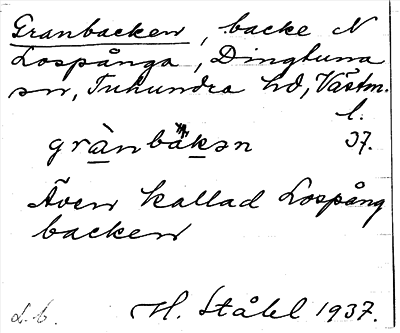 Granbacken, backe N
Lospånga, Dingtuna
sn, Tuhundra hd, Västm.
l.
grànbàkən 37.
Även kallad Lospång
backen
L. b. H. Ståhl 1937.